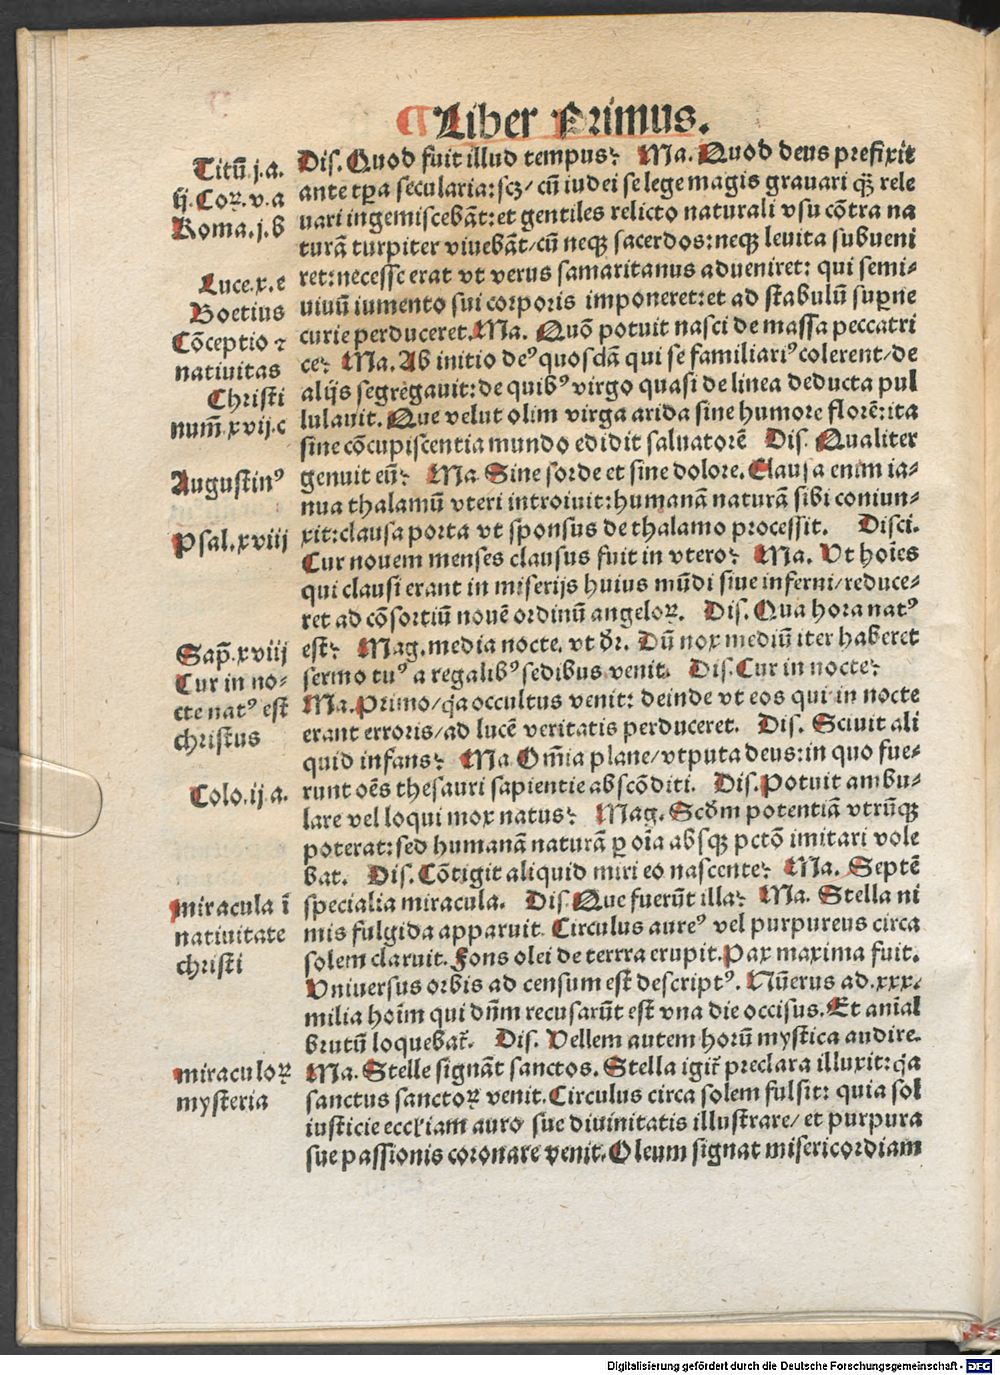 ¶ Liber Primus.
Titū.j.a.
ij.Coꝝ.v.a
Roma.j.d
Luce.x.e
Boetius
Cōceptio ⁊
natiuitas
Christi
num̄.xvij.c
Augustinꝰ
Psal.xviij
Sap̄.xviij
Cur in no-
cte natꝰ est
christus
Colo.ij.a.
miracula ī
natiuitate
christi
miraculoꝝ
mysteria
Dis. Quod fuit illud tempus? Ma. Quod deus prefixit
ante tꝑa secularia: scꝫ/ cū iudei se lege magis grauari qꝫ rele
uari ingemiscebāt: et gentiles relicto naturali vsu cōtra na
turā turpiter viuebāt/ cū neqꝫ sacerdos: neqꝫ leuita subueni
ret: necesse erat vt verus samaritanus adueniret: qui semi-
uiuū iumento sui corporis imponeret: et ad stabulū suꝑne
curie perduceret. Ma. Quō potuit nasci de massa peccatri
ce? Ma. Ab initio deꝰ quosdā qui se familiariꝰ colerent/ de
alijs segregauit: de quibꝰ virgo quasi de linea deducta pul
lulauit. Que velut olim virga arida sine humore florē: ita
sine cōcupiscentia mundo edidit saluatorē Dis. Qualiter
genuit eū? Ma Sine sorde et sine dolore. Clausa enim ia-
nua thalamū vteri introiuit: humanā naturā sibi coniun-
xit: clausa porta vt sponsus de thalamo processit. Disci.
Cur nouem menses clausus fuit in vtero? Ma. Ut hoīes
qui clausi erant in miserijs huius mūdi siue inferni/ reduce-
ret ad cōsortiū nouē ordinū angeloꝝ. Dis. Qua hora natꝰ
est? Mag. media nocte. vt dr̄. Dū nox mediū iter haberet
sermo tuꝰ a regalibꝰ sedibus venit. Dis. Cur in nocte?
Ma. Primo/ q̄a occultus venit: deinde vt eos qui in nocte
erant erroris/ ad lucē veritatis perduceret. Dis. Sciuit ali
quid infans? Ma Om̄ia plane/ vtputa deus: in quo fue-
runt oēs thesauri sapientie abscōditi. Dis. Potuit ambu-
lare vel loqui mox natus? Mag. Scd̄m potentiā vtrūqꝫ
poterat: sed humanā naturā ꝑ oīa absqꝫ pctō imitari vole
bat. Dis. Cōtigit aliquid miri eo nascente? Ma. Septē
specialia miracula. Dis Que fuerūt illa? Ma. Stella ni
mis fulgida apparuit. Circulus aureꝰ vel purpureus circa
solem claruit. Fons olei de terrra erupit. Pax maxima fuit.
Vniuersus orbis ad censum est descriptꝰ. Nūerus ad .xxx.
milia hoīm qui dn̄m recusarūt est vna die occisus. Et aīal
brutū loquebat̄. Dis. Vellem autem horū mystica audire.
Ma. Stelle signāt sanctos. Stella igit̄ preclara illuxit: q̄a
sanctus sanctoꝝ venit. Circulus circa solem fulsit: quia sol
iusticie eccl̄iam auro sue diuinitatis illustrare/ et purpura
sue passionis coronare venit. Oleum signat misericordiam
Digitalisierung gefördert durch die Deutsche Forschungsgemeinschaft - DFG